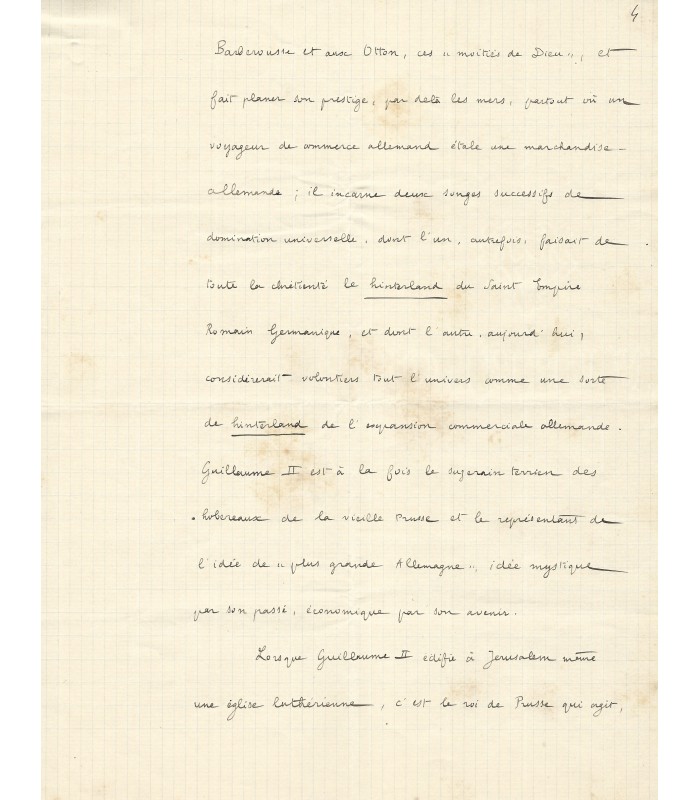 4
Barberousse et aux Otton, ces « moitiés de Dieu », et
fait planer son prestige, par delà les mers, partout où un
voyageur de commerce allemand étale une marchandise
allemande ; il incarne deux songes successifs de
domination universelle, dont l'un, autrefois, faisait de
toute la chrétienté le hinterland du Saint Empire
Romain Germanique, et dont l'autre, aujourd'hui,
considérerait volontiers tout l'univers comme une sorte
de hinterland de l'expansion commerciale allemande.
Guillaume II est à la fois le suzerain terrien des
hobereaux de la vieille Prusse et le représentant de
l'idée de « plus grande Allemagne », idée mystique
par son passé, économique par son avenir.
Lorsque Guillaume II édifie à Jerusalem même
une église luthérienne, c'est le roi de Prusse qui agit,